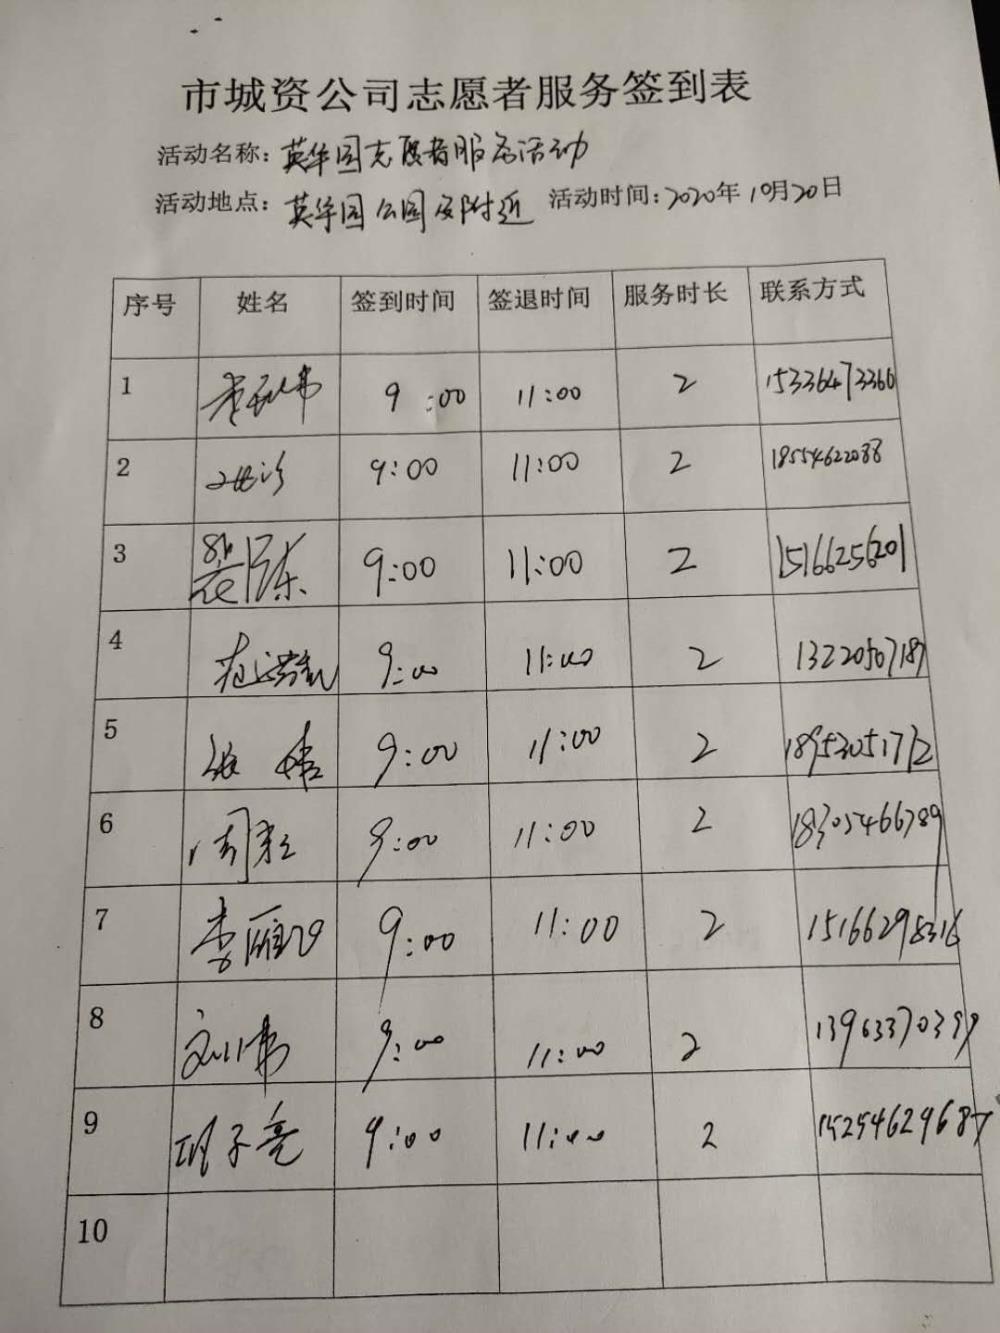 市城资公司志愿者服务签到表
活动名称：英华园志愿者服务活动
活动地点：英华园公园及附近 活动时间：2020年10月20日
序号 姓名 签到时间 签退时间 服务时长 联系方式
1 9:00 11:00 2 15336473366
2 9:00 11:00 2 18554622088
3 9:00 11:00 2 15166256201
4 9:00 11:00 2 13220507187
5 张婧 9:00 11:00 2 18953051712
6 周彩 9:00 11:00 2 18305466789
7 李雁鸿 9:00 11:00 2 15166298316
8 刘伟 9:00 11:00 2 13963370399
9 邵子亮 9:00 11:00 2 15254629687
10